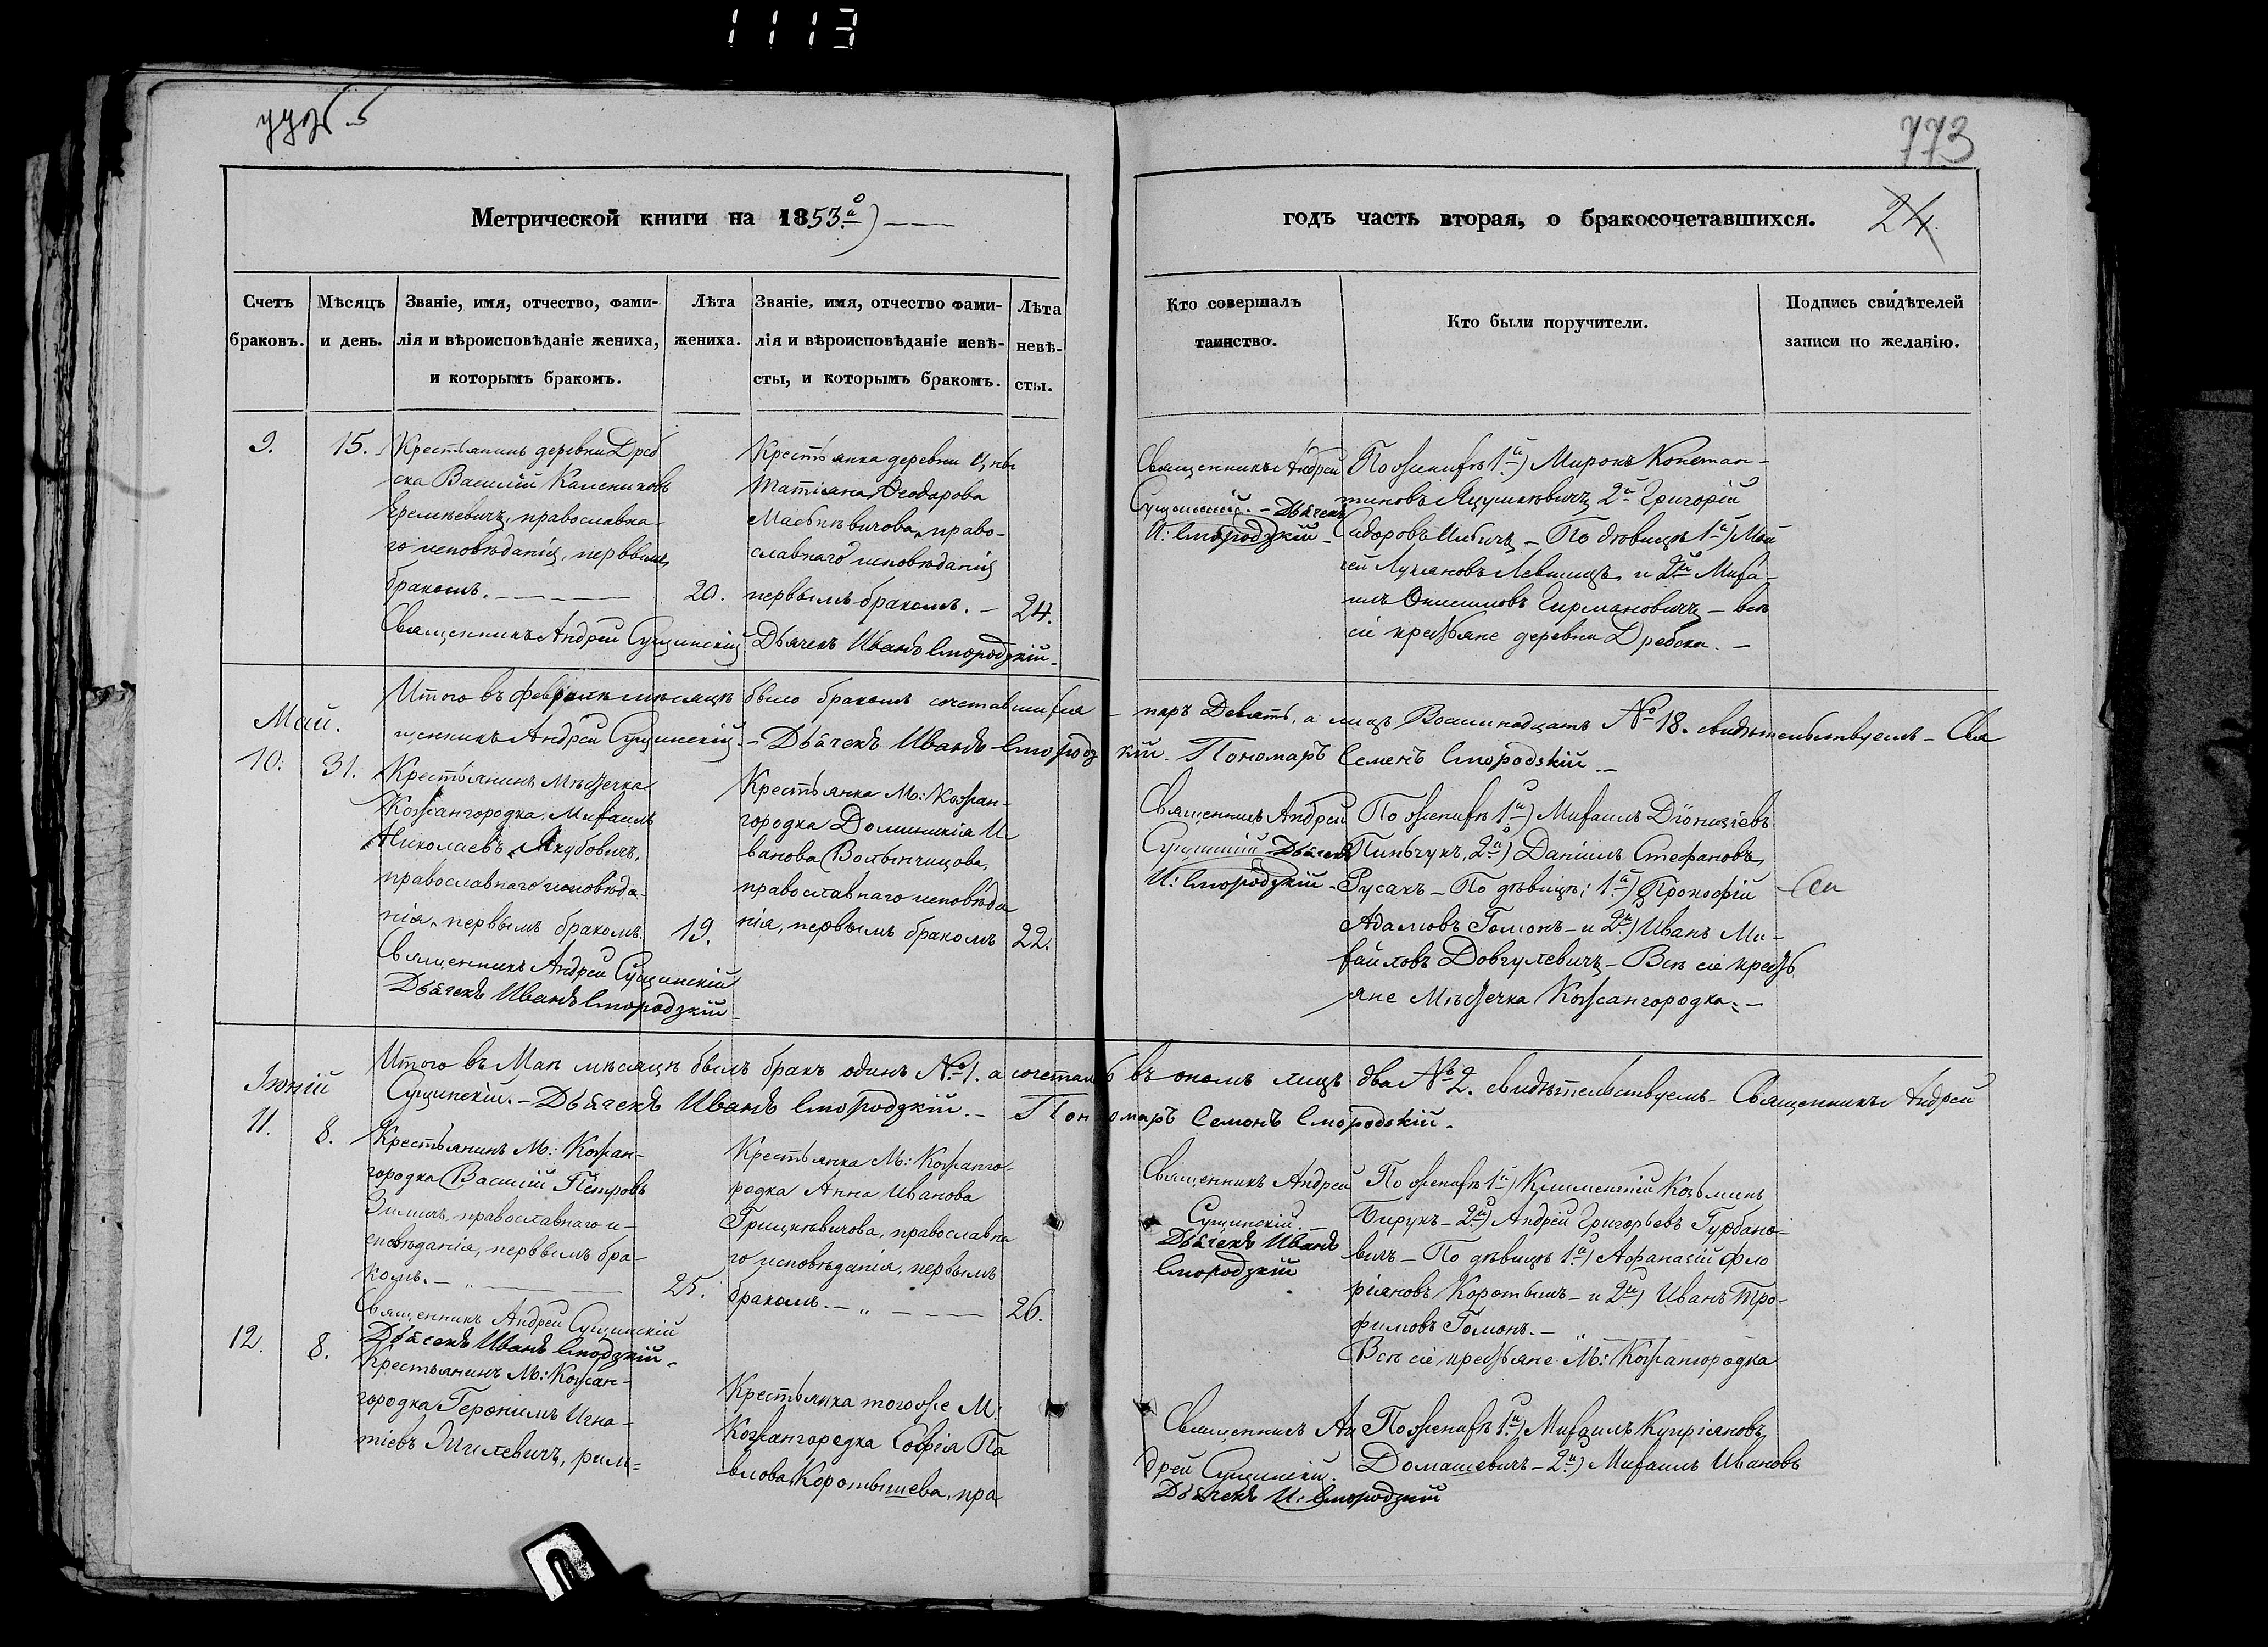 1113
773
Метрической книги на 1853й
годъ часть вторая, о бракосочетавшихся.
24.
Счетъ
браковъ.
Мѣсяцъ
и день.
Званіе, имя, отчество, фами-
лія и вѣроисповѣданіе жениха,
и которымъ бракомъ.
Лѣта
жениха.
Званіе, имя, отчество фами-
лія и вѣроисповѣданіе невѣ-
сты, и которымъ бракомъ.
Лѣта
невѣ-
сты.
Кто совершалъ
таинство.
Кто были поручители.
Подпись свидѣтелей
записи по желанію.
9.
15.
Крестьянинъ деревни Дреб
ска Василій Калениковъ
Еремѣевичъ, православна-
го исповѣданія, первымъ
бракомъ.
20.
Священникъ Андрей Сущинскій
Крестьянка деревни Цны
Татіана Ѳеодорова
православнаго исповѣданія
первымъ бракомъ. –
24.
Дьячекъ Иванъ Смородзкій.
Священникъ Андрей
Сущинскій. – Дьячекъ
И: Смородзкій –
По женихѣ 1й) Миронъ Констан-
тиновъ Яцушкевичъ 2й Григорій
Сидоровъ – По дѣвицѣ 1й) Мои
сей Лукановъ Левшицъ и 2й Миха-
илъ Онисимовъ Гирмановичъ – всѣ
сіи крестьяне деревни Дребска. –
Итого въ февралѣ мѣсяцѣ было бракомъ сочетавшихся – паръ Девять, а лицъ Восминадцать № 18. свидѣтельствуемъ – Свя
щенникъ Андрей Сущинскій – Дьячекъ Иванъ Смородзкій. Пономаръ Семенъ Смородскій –
Май.
10.
31.
Крестьянинъ Мѣстечка
Кожангородка, Михаилъ
Николаевъ Якубовичъ,
православнаго исповѣда-
нія, первымъ бракомъ.
19.
Священникъ Андрей Сущинскій
Дьячекъ Иванъ Смородзкій
Крестьянка М: Кожан-
городка Доминикія И
ванова Волынчицова,
православнаго исповѣда
нія, первымъ бракомъ
22.
Священникъ Андрей
Сущинскій Дьячекъ
И: Смородзкій –
По женихѣ 1й) Михаилъ Діонизіевъ
Пиньчукъ, 2й) Даніилъ Стефановъ
Русакъ – По дѣвицѣ: 1й) Прокофій
Адамовъ Гомонъ – и 2й) Иванъ Ми-
хайловъ Довгулевичъ – Всѣ сіе кресть
яне Мѣстечка Кожангородка. –
Итого въ Маѣ мѣсяцѣ былъ бракъ одинъ № 1. а сочетал въ ономъ лицъ два № 2. свидѣтельствуемъ – Священникъ Андрей
Сущинскій. – Дьячекъ Иванъ Смородзкій. – Пономаръ Семенъ Смородскій.
Іюній
11.
8.
Крестьянинъ М: Кожан-
городка Василій Петровъ
Зиличъ православнаго и-
сповѣданія, первымъ бра-
комъ. –
25.
Священникъ Андрей Сущинскій
Дьячекъ Иванъ Смодзкій –
Крестьянка М: Кожанго-
родка Анна Иванова
Грицкѣвичова, православна
го исповѣданія, первымъ
бракомъ. –
26.
Священникъ Андрей
Сущинскій. –
Дьячекъ Иванъ
Смородзкій
По женихѣ 1й) Климентій Козьминъ
Бирукъ – 2й) Андрей Григорьевъ Гурбано-
вичъ – По дѣвицѣ 1й) Афанасій Фло
ріановъ Коротышъ – и 2й) Иванъ Тро-
фимовъ Гомонъ. –
Всѣ сіе крестьяне М: Кожангородка
12.
8.
Крестьянинъ М: Кожан-
городка Геронимъ Игна-
тіевъ Милевичъ, рим=
Крестьянка тогоже М:
Кожангородка Софія Па
влова Коротышева, пра
Священникъ Ан
дрей Сущинскій.
Дьячекъ И: Смородзкій
По женихѣ 1й) Михаилъ Купріяновъ
Домашевичъ – 2й) Михаилъ Ивановъ